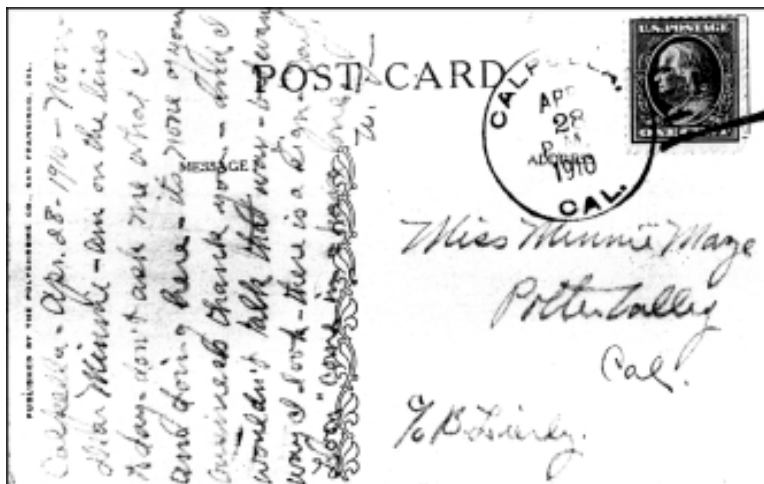 POST CARD
MESSAGE
PUBLISHED BY THE POLYCHROME CO., SAN FRANCISCO, CAL.
Calpella - Apr. 28 - 1910 - Noon -
Dear Minnie - am on the lines
to day - don't ask me what I
am doing here - its none of your
business thank you - and I
wouldn't talk that way - but every
way I look - there is a sign
CALPELLA.
APR
28
1910
CAL.
U.S. POSTAGE
ONE CENT
Miss Minnie Maze
Potter Valley
Cal.
c/o B